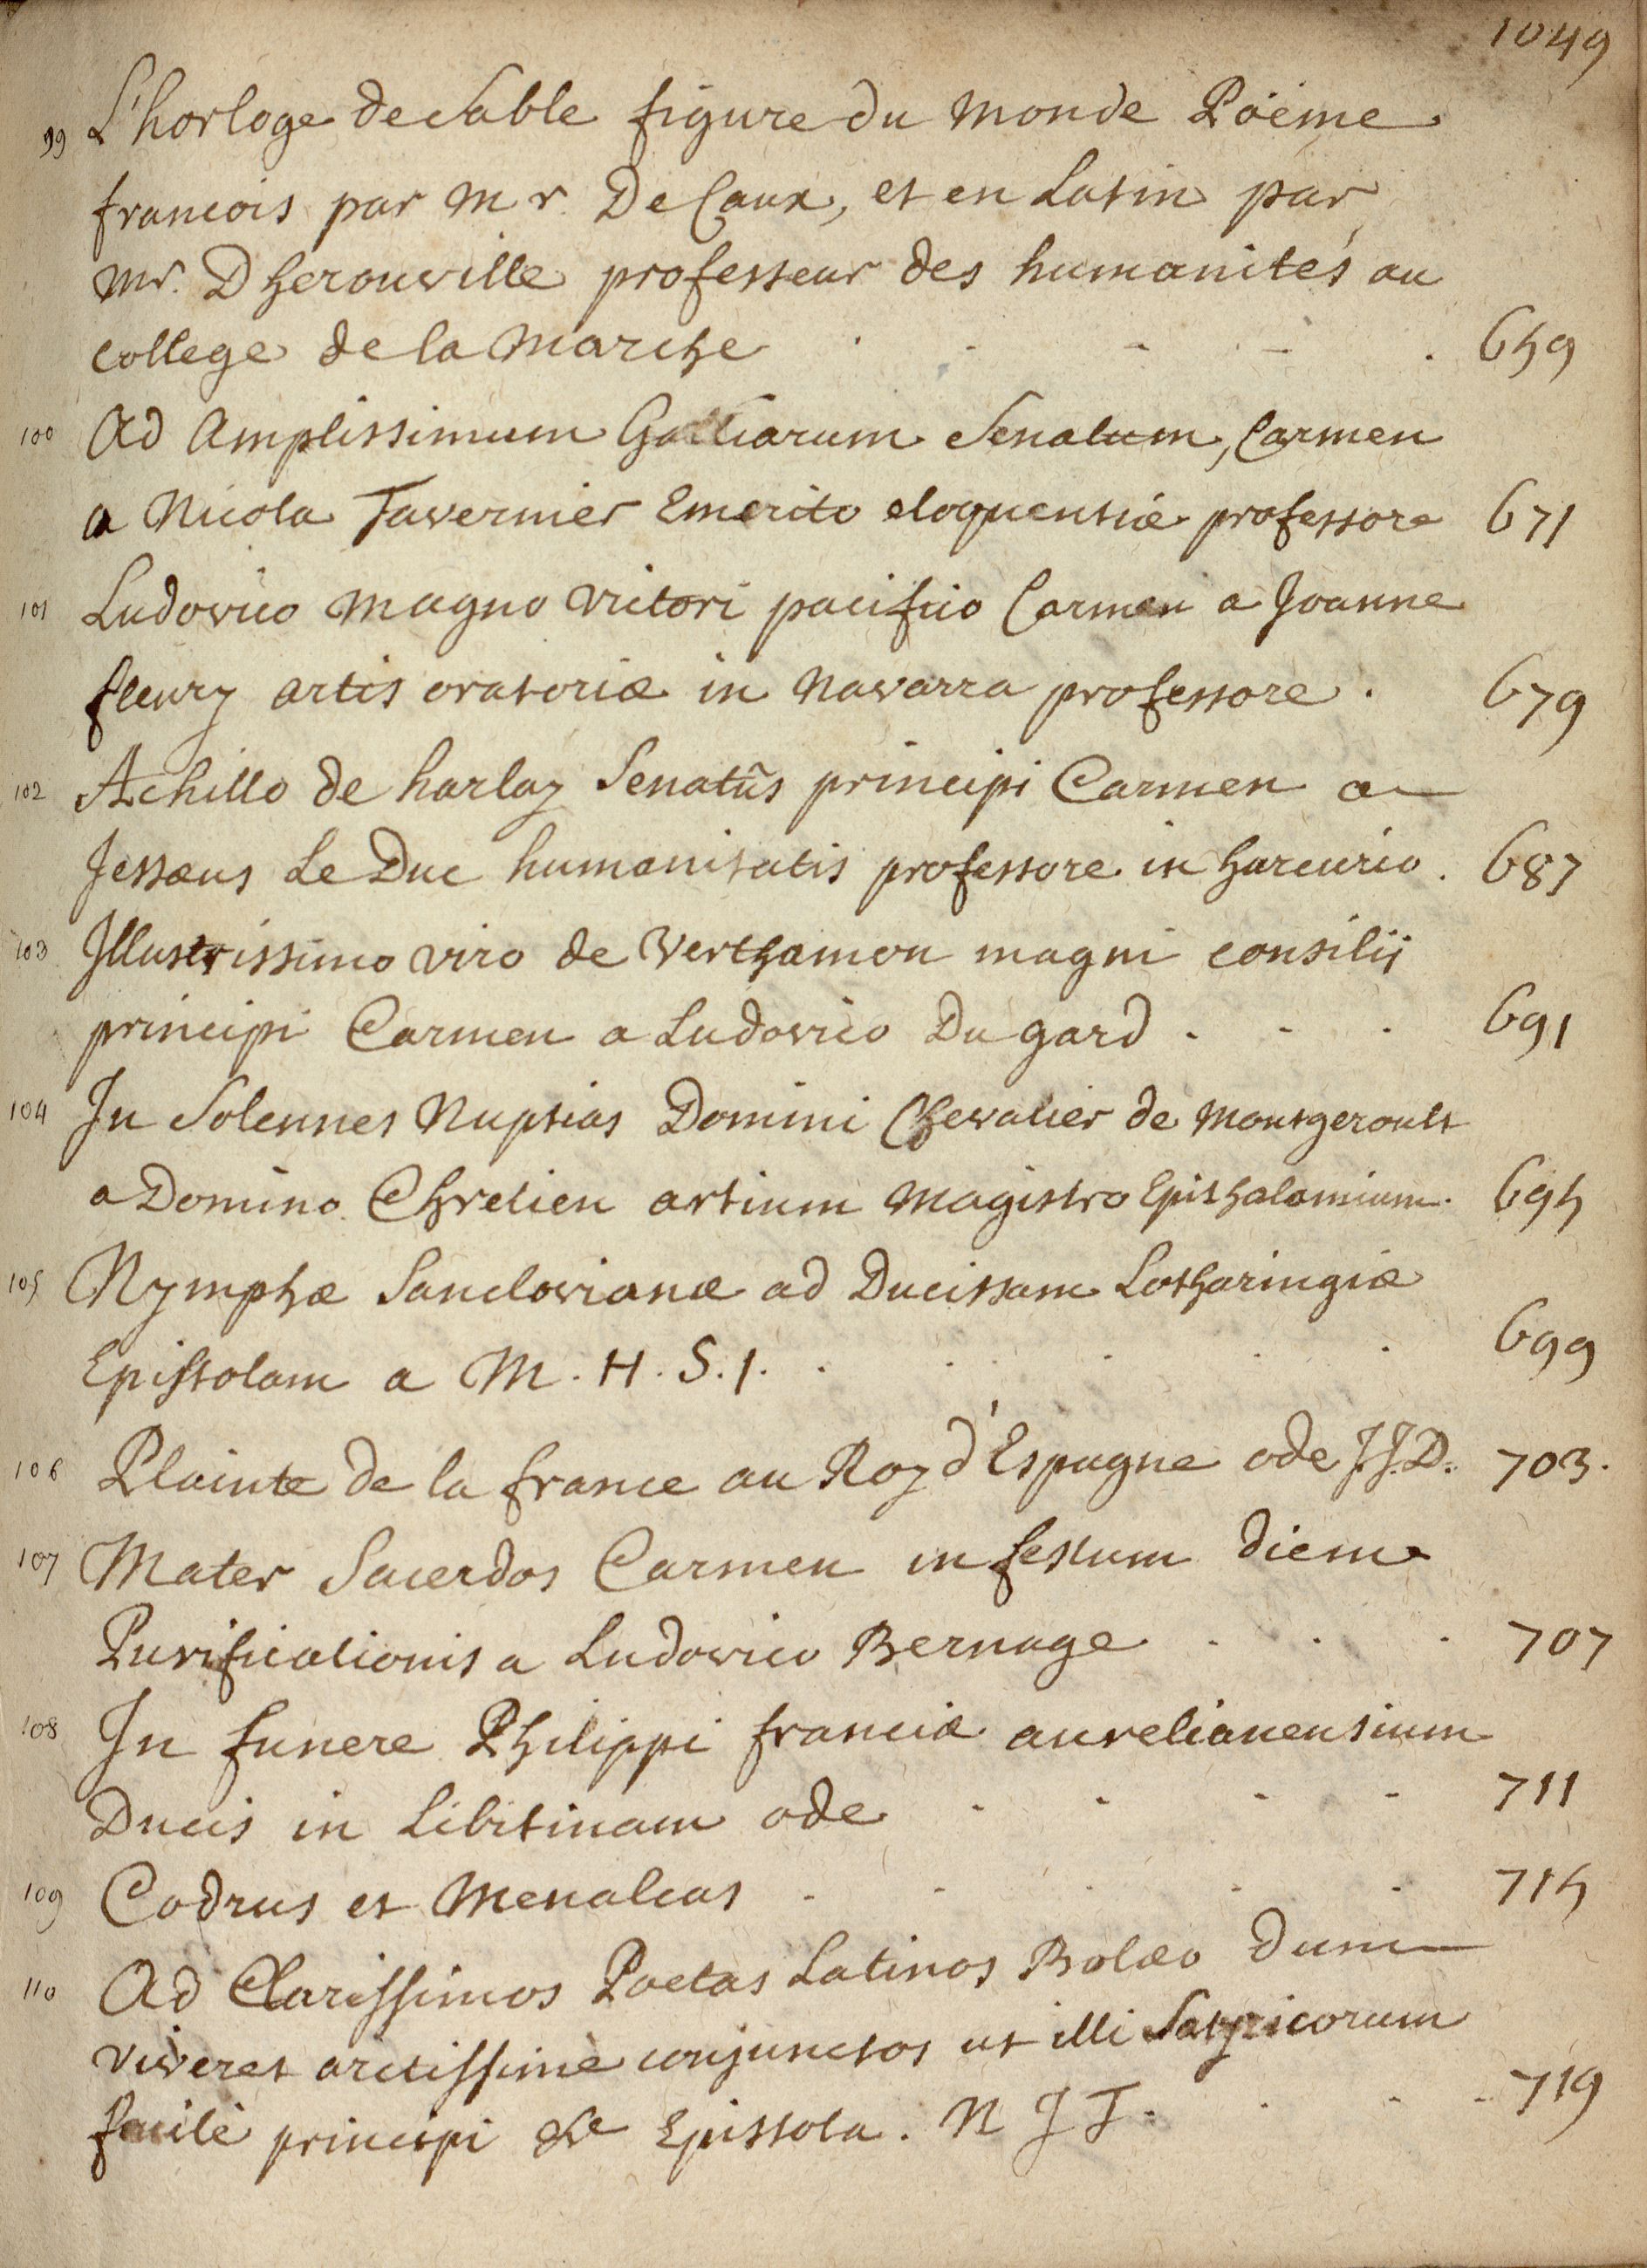 1049
99 L'horloge de Sable figure du monde Poëme
francois par Mr. De Caux, et en Latin par
Mr. Dherouville professeur des humanités au
college de la Marche . . . . . 659
100 Ad Amplissimum Galliarum Senatum, Carmen
a Nicola Tavernier Emerito eloquentiæ professore 671
101 Ludovico Magno Victori pacifico Carmen a Joanne
fleury artis oratoriæ in Navarra professore . 679
102 Achillo de harlay Senatũs principi Carmen a
Jessæus Le Duc humanitatis professore in harcurio . 687
103 Illustrissimo viro de Verthamon magni consilij
principi Carmen a Ludovico Dugard . . . 691
104 In Solennes Nuptias Domini Chevalier de Montgeroult
a Domino Chretien artium Magistro Epithalamium. 695
105 Nymphæ Sanclovianæ ad Ducissam Lotharingiæ
Epistolam a M. H. S. J. . . . . . 699
106 Plainte de la france au Roy d'Espagne ode J.J.D. 703.
107 Mater Sacerdos Carmen in festum diem
Purificationis a Ludovico Bernage . . . 707
108 In funere Philippi franciæ aurelianensium
Ducis in Libitinam ode . . . . 711
109 Codrus et Menalcas . . . . . 715
110 Ad Clarissimos Poetas Latinos Bolæo dum
viveret arctissimè conjunctos ut illi Satyricorum
facilè principi &c Epistola. N J T. . . . 719